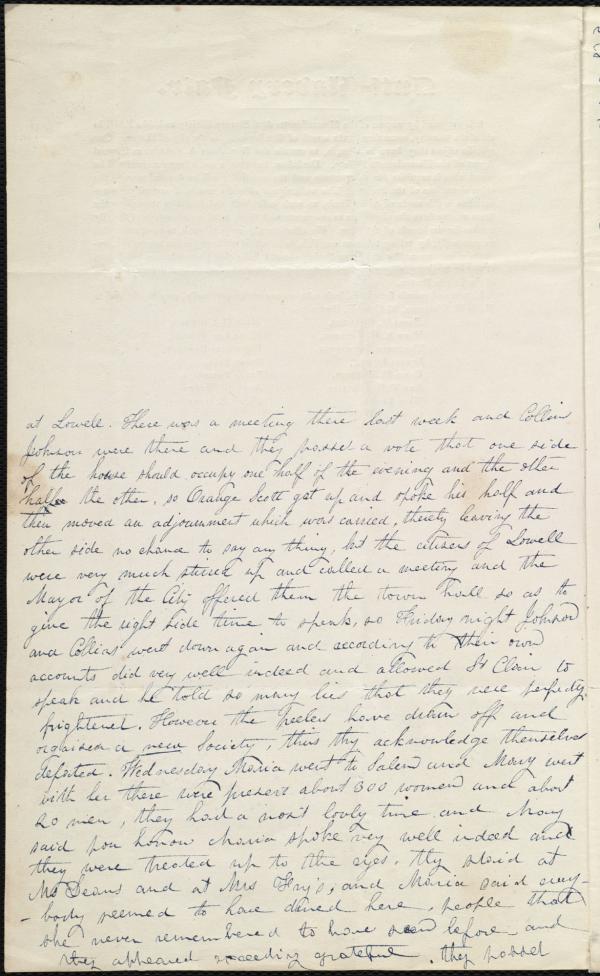 at Lowell. There was a meeting there last week and Collins
Johnson were there and they passed a vote that one side
of the house should occupy one half of the evening and the other
half the other, so Orange Scott got up and spoke his half and
then moved an adjournment which was carried, thereby leaving the
other side no chance to say any thing, but the citizens of Lowell
were very much stirred up and called a meeting and the
Mayor of the City offered them the town hall so as to
give the right side time to speak, so Friday night Johnson
and Collins went down again and according to their own
accounts did very well indeed and allowed St Clair to
speak and he told so many lies that they were perfectly
frightened. However the Peelers have drawn off and
organised a new Society, thus thy acknowledge themselves
defeated. Wednesday Maria went to Salem and Mary went
with her there were present about 300 women and about
20 men, they had a most lovly time and Mary
said pon honour Maria spoke very well indeed and
they were treated up to the eyes. they staid at
Mrs Deans and at Mrs and Maria said every-
-body seemed to have dined here, people that
she never remembered to have seen before and
they appeared exceeding grateful. they passed